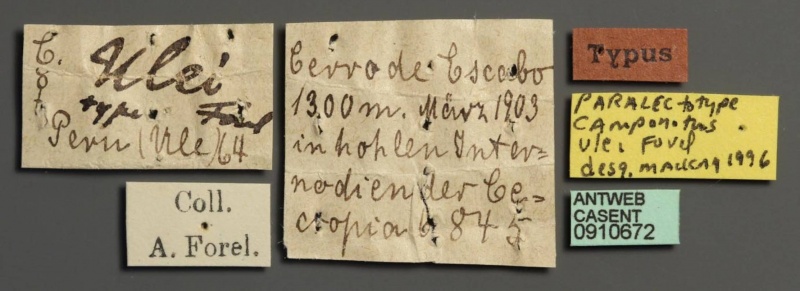 C. Ulei
☿
type Forel
Peru (Ule) 64
Coll.
A. Forel.
Cerro de Escabo
1300 m. März 1903
in hohlen Inter=
nodien der Ce=
cropia 845
Typus
PARALECtotype
CAmponotus
ulei Forel
desg. MACKAY 1996
ANTWEB
CASENT
0910672